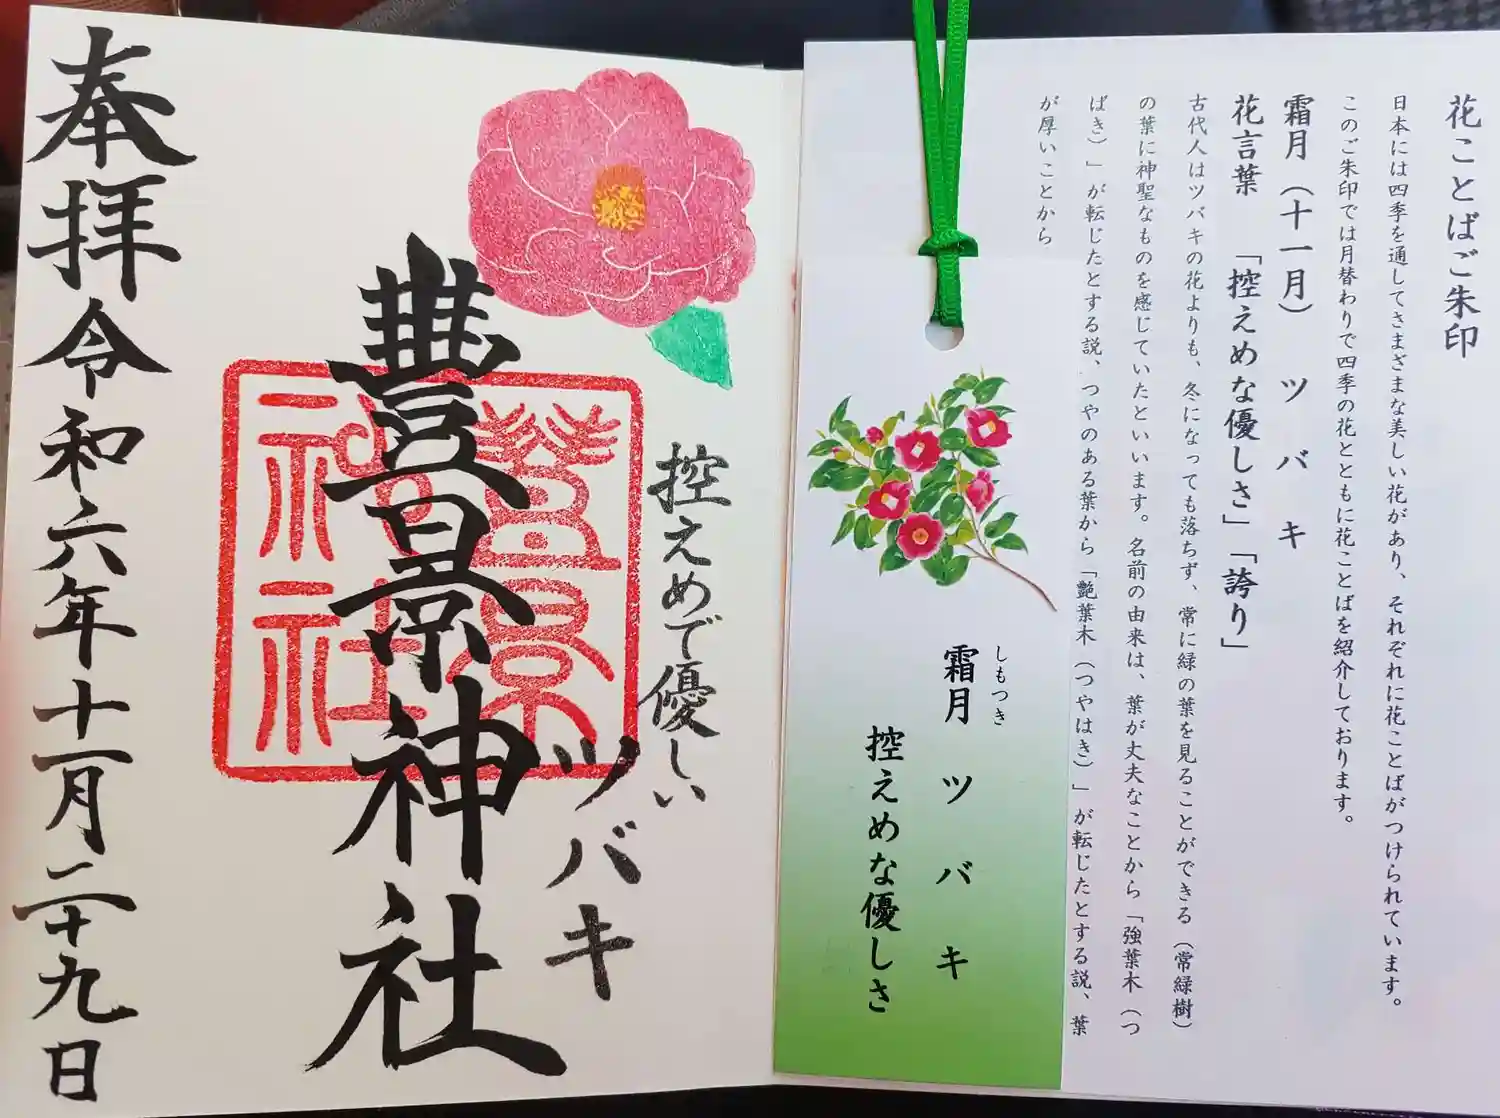 花ことばご朱印
日本には四季を通してさまざまな美しい花があり、それぞれに花ことばがつけられています。
このご朱印では月替わりで四季の花とともに花ことばを紹介しております。
霜月（十一月） ツバキ
花言葉 「控えめな優しさ」「誇り」
古代人はツバキの花よりも、冬になっても落ちず、常に緑の葉を見ることができる（常緑樹）
の葉に神聖なものを感じていたといいます。名前の由来は、葉が丈夫なことから「強葉木（つ
ばき）」が転じたとする説、つやのある葉から「艶葉木（つやはき）」が転じたとする説、葉
が厚いことから
しもつき
霜月 ツバキ
控えめな優しさ
控えめで優しい
ツバキ
豊景神社
豊景
神社
奉拝 令和六年十一月二十九日